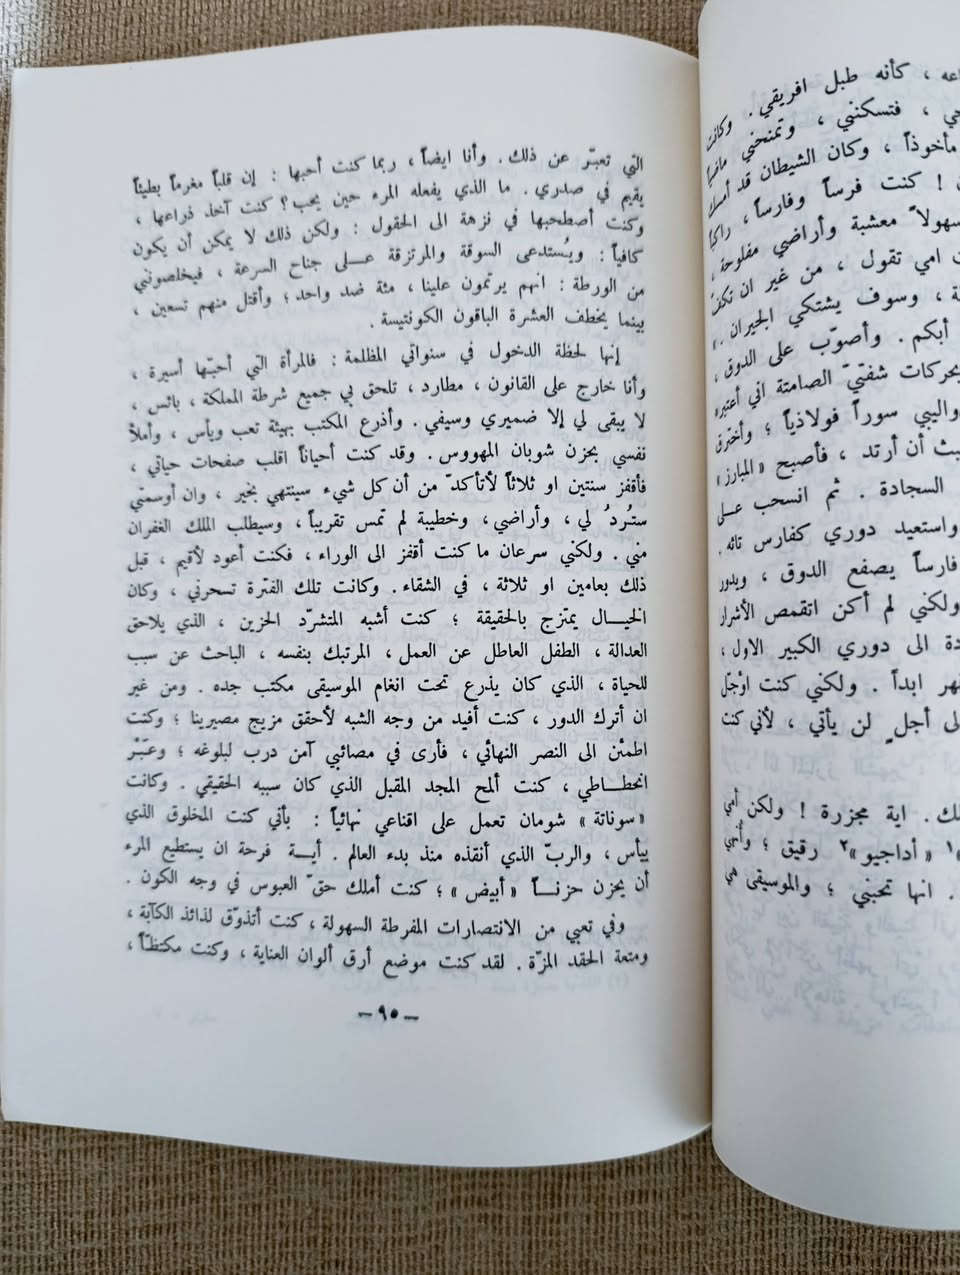 اعه ، كأنه طبل افريقي. وكانت
جي ، فتسكنني ، وتمنحني ماضياً
مأخوذاً ، وكان الشيطان قد أمسك
ن ! كنت فرساً وفارساً ، راكباً
سهولاً معشبة وأراضي مفلوحة ،
ت امي تقول ، من غير ان تكفّ
ة ، وسوف يشتكي الجيران . »
أبكم. وأصوّب على الدوق ،
بحركات شفتيّ الصامتة اني أعتبره
واليبي سوراً فولاذياً ؛ وأخترق
يث أن أرتد ، فأصبح «المبارز»
السجادة . ثم انسحب عـلى
واستعيد دوري كفارس تائه.
فارساً يصفع الدوق ، ويدور
ولكني لم أكن اتقمص الأشرار
دة الى دوري الكبير الاول ،
هر ابداً . ولكني كنت اوْجّل
لى أجل لن يأتي ، لأني كنت
لك. اية مجزرة ! ولكن أمي
»١ «أداجيو»٢ رقيق ؛ وأُنهي
. انها تحبني ؛ والموسيقى هي
التي تعبّر عن ذلك. وأنا ايضاً ، ربما كنت أحبها : إن قلباً مغرماً بطيئاً
يقيم في صدري . ما الذي يفعله المرء حين يحب؟ كنت آخذ ذراعها ،
وكنت أصطحبها في نزهة الى الحقول : ولكن ذلك لا يمكن أن يكون
كافياً : ويُستدعى السوقة والمرتزقة عـلى جناح السرعة ، فيخلصونني
من الورطة : انهم يرتمون علينا ، مئة ضد واحد ؛ وأقتل منهم تسعين ،
بينما يخطف العشرة الباقون الكونتيسة .
إنها لحظة الدخول في سنواتي المظلمة : فالمرأة التي أحبّها أسيرة ،
وأنا خارج على القانون ، مطارد ، تلحق بي جميع شرطة المملكة ، بائس ،
لا يبقى لي إلا ضميري وسيفي. وأذرع المكتب بهيئة تعب ويأس ، وأملأ
نفسي بحزن شوبان المهووس . وقد كنت أحياناً اقلب صفحات حياتي ،
فأقفز سنتين او ثلاثاً لأتأكدّ من أن كل شيء سينتهي بخير ، وان أوسمتي
ستُردُ لي ، وأراضي ، وخطيبة لم تمس تقريباً ، وسيطلب الملك الغفران
مني . ولكني سرعان ما كنت أقفز الى الوراء ، فكنت أعود لأقيم ، قبل
ذلك بعامين او ثلاثة ، في الشقاء. وكانت تلك الفترة تسحرني ، وكان
الخيـال يمتزج بالحقيقة ؛ كنت أشبه المتشرّد الحزين ، الذي يلاحق
العدالة ، الطفل العاطل عن العمل ، المرتبك بنفسه ، الباحث عن سبب
للحياة ، الذي كان يذرع تحت انغام الموسيقى مكتب جده . ومن غير
ان أترك الدور ، كنت أفيد من وجه الشبه لأحقق مزيج مصيرينا ؛ وكنت
اطمئن الى النصر النهائي ، فأرى في مصائبي آمن درب لبلوغه ؛ وعَبْر
انحطـاطي ، كنت ألمح المجد المقبل الذي كان سببه الحقيقي . وكانت
«سوناتة» شومان تعمل على اقناعي نهائياً : بأني كنت المخلوق الذي
ييأس ، والربّ الذي أنقذه منذ بدء العالم . أيـة فرحة ان يستطيع المرء
أن يحزن حزنـاً «أبيض» ؛ كنت أملك حقّ العبوس في وجه الكون .
وفي تعبي من الانتصارات المفرطة السهولة ، كنت أتذوّق لذائذ الكآبة ،
ومتعة الحقد المزّة . لقد كنت موضع أرق ألوان العناية ، وكنت مكتظّاً ،
– ٩٥ –